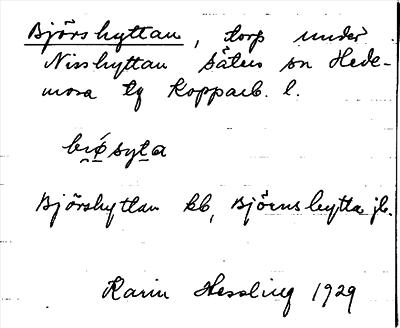 Björshyttan, torp under
Nisshyttan Säters sn Hede-
mora tg Kopparb. l.
bi̯ǿsyta
Björshyttan kb, Björnshytta jb.
Karin Hessling 1929